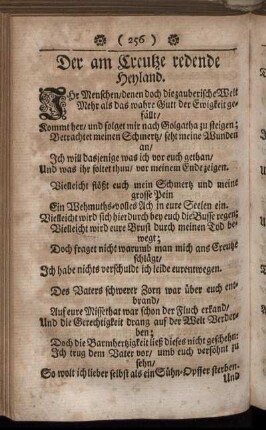 ( 256 )
Der am Creutze redende
Heyland.
IHr Menschen/ denen doch die zauberische Welt
Mehr als das wahre Gutt der Ewigkeit ge-
fällt/
Kommt her/ und folget mir nach Golgatha zu steigen;
Betrachtet meinen Schmertz/ seht meine Wunden
an/
Ich will dasjenige was ich vor euch gethan/
Und was ihr soltet thun/ vor meinem Ende zeigen.
Vielleicht flößt euch mein Schmertz und meine
grosse Pein
Ein Wehmuths-volles Ach in eure Seelen ein.
Vielleicht wird sich hierdurch bey euch die Busse regen;
Vielleicht wird eure Brust durch meinen Tod be-
wegt;
Doch fraget nicht warumb man mich ans Creutze
schlägt/
Ich habe nichts verschuldt ich leide eurentwegen.
Des Vaters schwerer Zorn war über euch ent-
brand/
Auf eure Missethat war schon der Fluch erkand/
Und die Gerechtigkeit drang auf der Welt Verder-
ben;
Doch die Barmhertzigkeit ließ dieses nicht geschehn:
Ich trug dem Vater vor/ umb euch versöhnt zu
sehn/
So wolt ich lieber selbst als ein Sühn-Opffer sterben.
Und